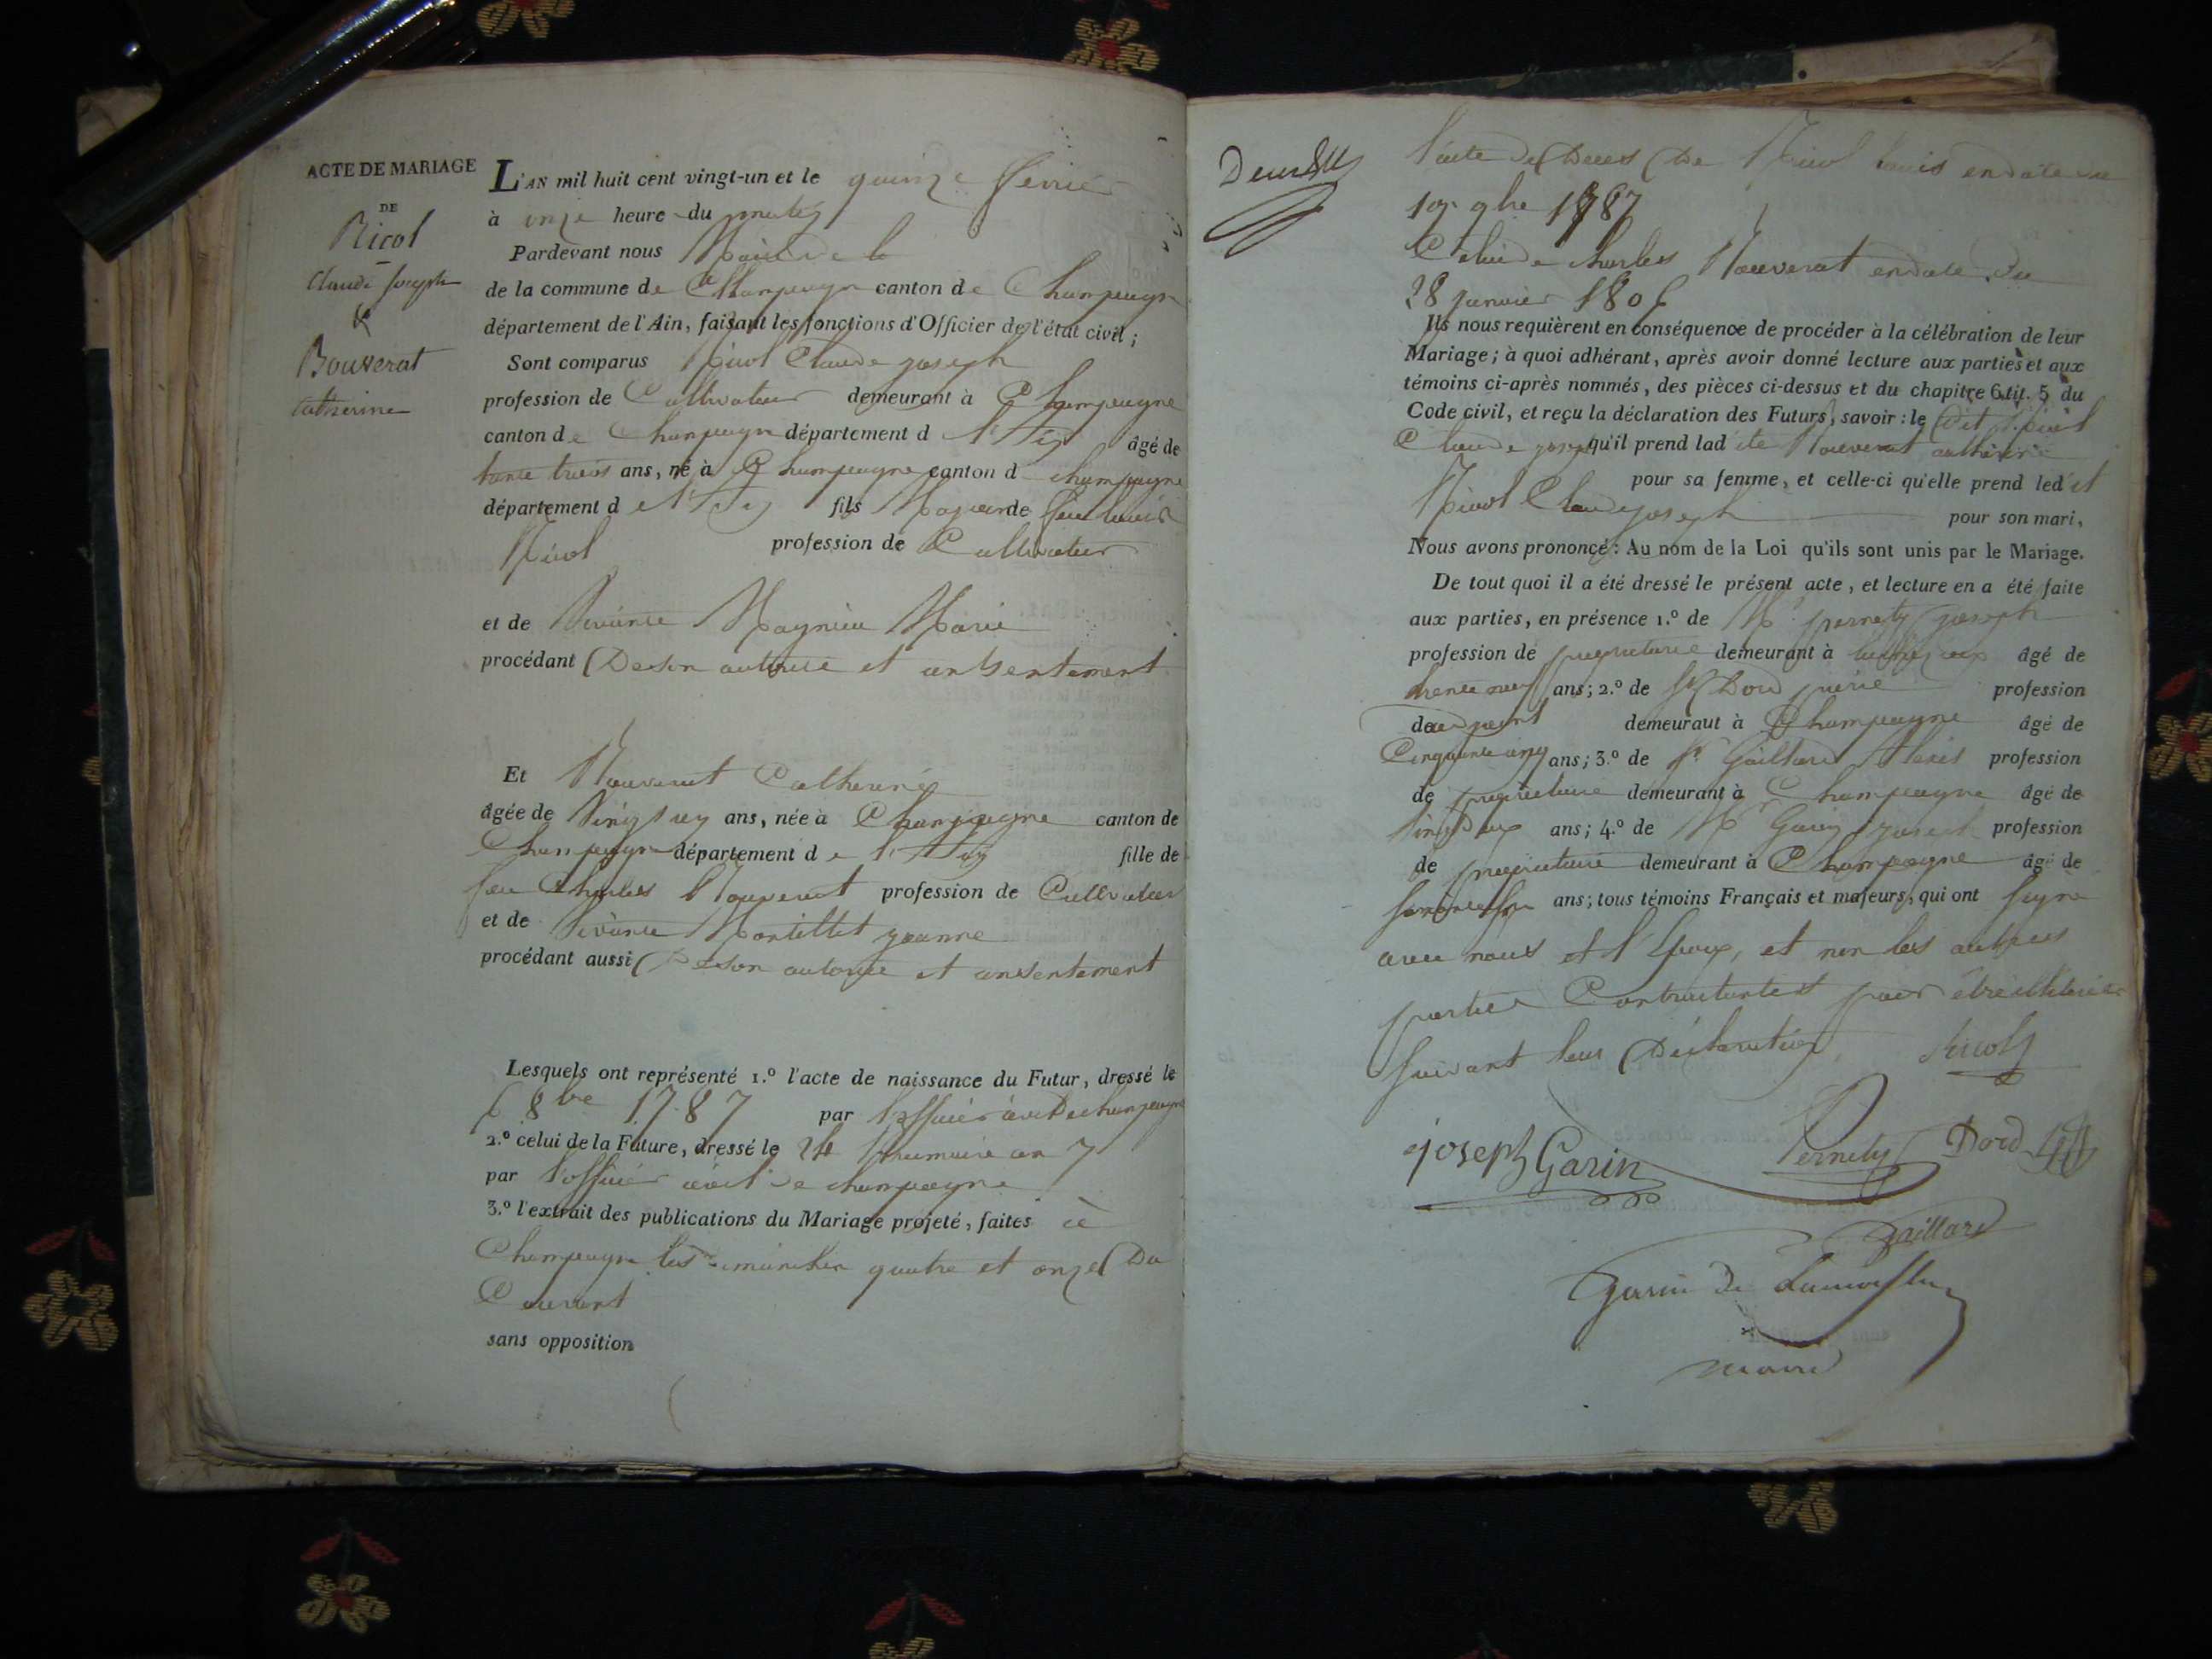 ACTE DE MARIAGE
DE
Ricol
Claude Joseph
&
Bouverat
Catherine
L'AN mil huit cent vingt-un et le quinze fevrier
à onze heure du matin
Pardevant nous Maire de la
de la commune de Champagne canton de Champagne
département de l'Ain, faisant les fonctions d'Officier de l'état civil;
Sont comparus Ricol Claude joseph
profession de Cultivateur demeurant à Champagne
canton de Champagne département de l'Ain âgé de
trente trois ans, né à Champagne canton d champagne
département de l'Ain fils Majeur de feu louis
Ricol profession de Cultivateur
et de vivante Magnieu Marie
procédant De son autorité et consentement
Et Bouverat Catherine
âgée de vingt deux ans, née à Champagne canton de
Champagne département de l'Ain fille de
feu Charles Bouverat profession de Cultivateur
et de vivante Montillet jeanne
procédant aussi De son autorité et consentement
Lesquels ont représenté 1.º l'acte de naissance du Futur, dressé le
6 8bre 1787 par l'officier civil De champagne
2.º celui de la Future, dressé le 24 brumaire an 7
par l'officier civil de champagne
3.º l'extrait des publications du Mariage projeté, faites à
Champagne les dimanches quatre et onze Du
Courant
sans opposition
l'acte de Deces De Ricol louis en date du
9bre 1787
Celui de charles Bouverat en date du
28 janvier 1806
Ils nous requièrent en conséquence de procéder à la célébration de leur
Mariage; à quoi adhérant, après avoir donné lecture aux parties et aux
témoins ci-après nommés, des pièces ci-dessus et du chapitre 6 tit. 5 du
Code civil, et reçu la déclaration des Futurs, savoir: le Dit Ricol
Claude joseph qu'il prend ladite Bouverat catherine
pour sa femme, et celle-ci qu'elle prend ledit
Ricol Claude joseph pour son mari,
Nous avons prononcé: Au nom de la Loi qu'ils sont unis par le Mariage.
De tout quoi il a été dressé le présent acte, et lecture en a été faite
aux parties, en présence 1.º de Mr pernety joseph
profession de propriétaire demeurant à âgé de
trente neuf ans; 2.º de Sr Dord pierre profession
de adjoint demeurant à Champagne âgé de
Cinquante cinq ans; 3.º de Sr Gaillard Alexis profession
de propriétaire demeurant à Champagne âgé de
vingt deux ans; 4.º de Mr Garin joseph profession
de propriétaire demeurant à Champagne âgé de
ans; tous témoins Français et majeurs, qui ont signé
avec nous et l'Epoux, et non les autres
parties Contractantes pour être illitérées
suivant leur Déclaration. Ricol
joseph Garin Pernety Dord
Gaillard
Garin De Lamorflan
maire